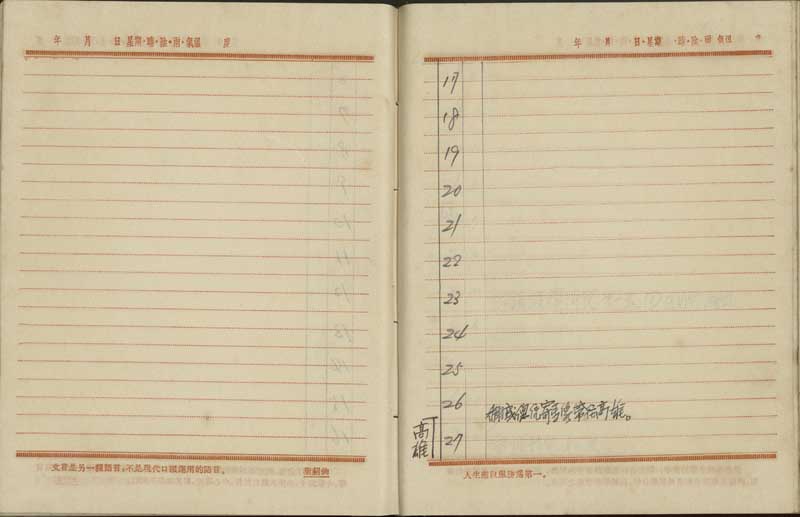 年 月 日 星期・時・陰・雨・氣溫 度
文言是另一種語言,不是現代口頭應用的語言。
年 月 日・星期・時・陰・雨 氣溫
17
18
19
20
21
22
23
24
25
26 高雄。
高雄 27
人生應以服務為第一。